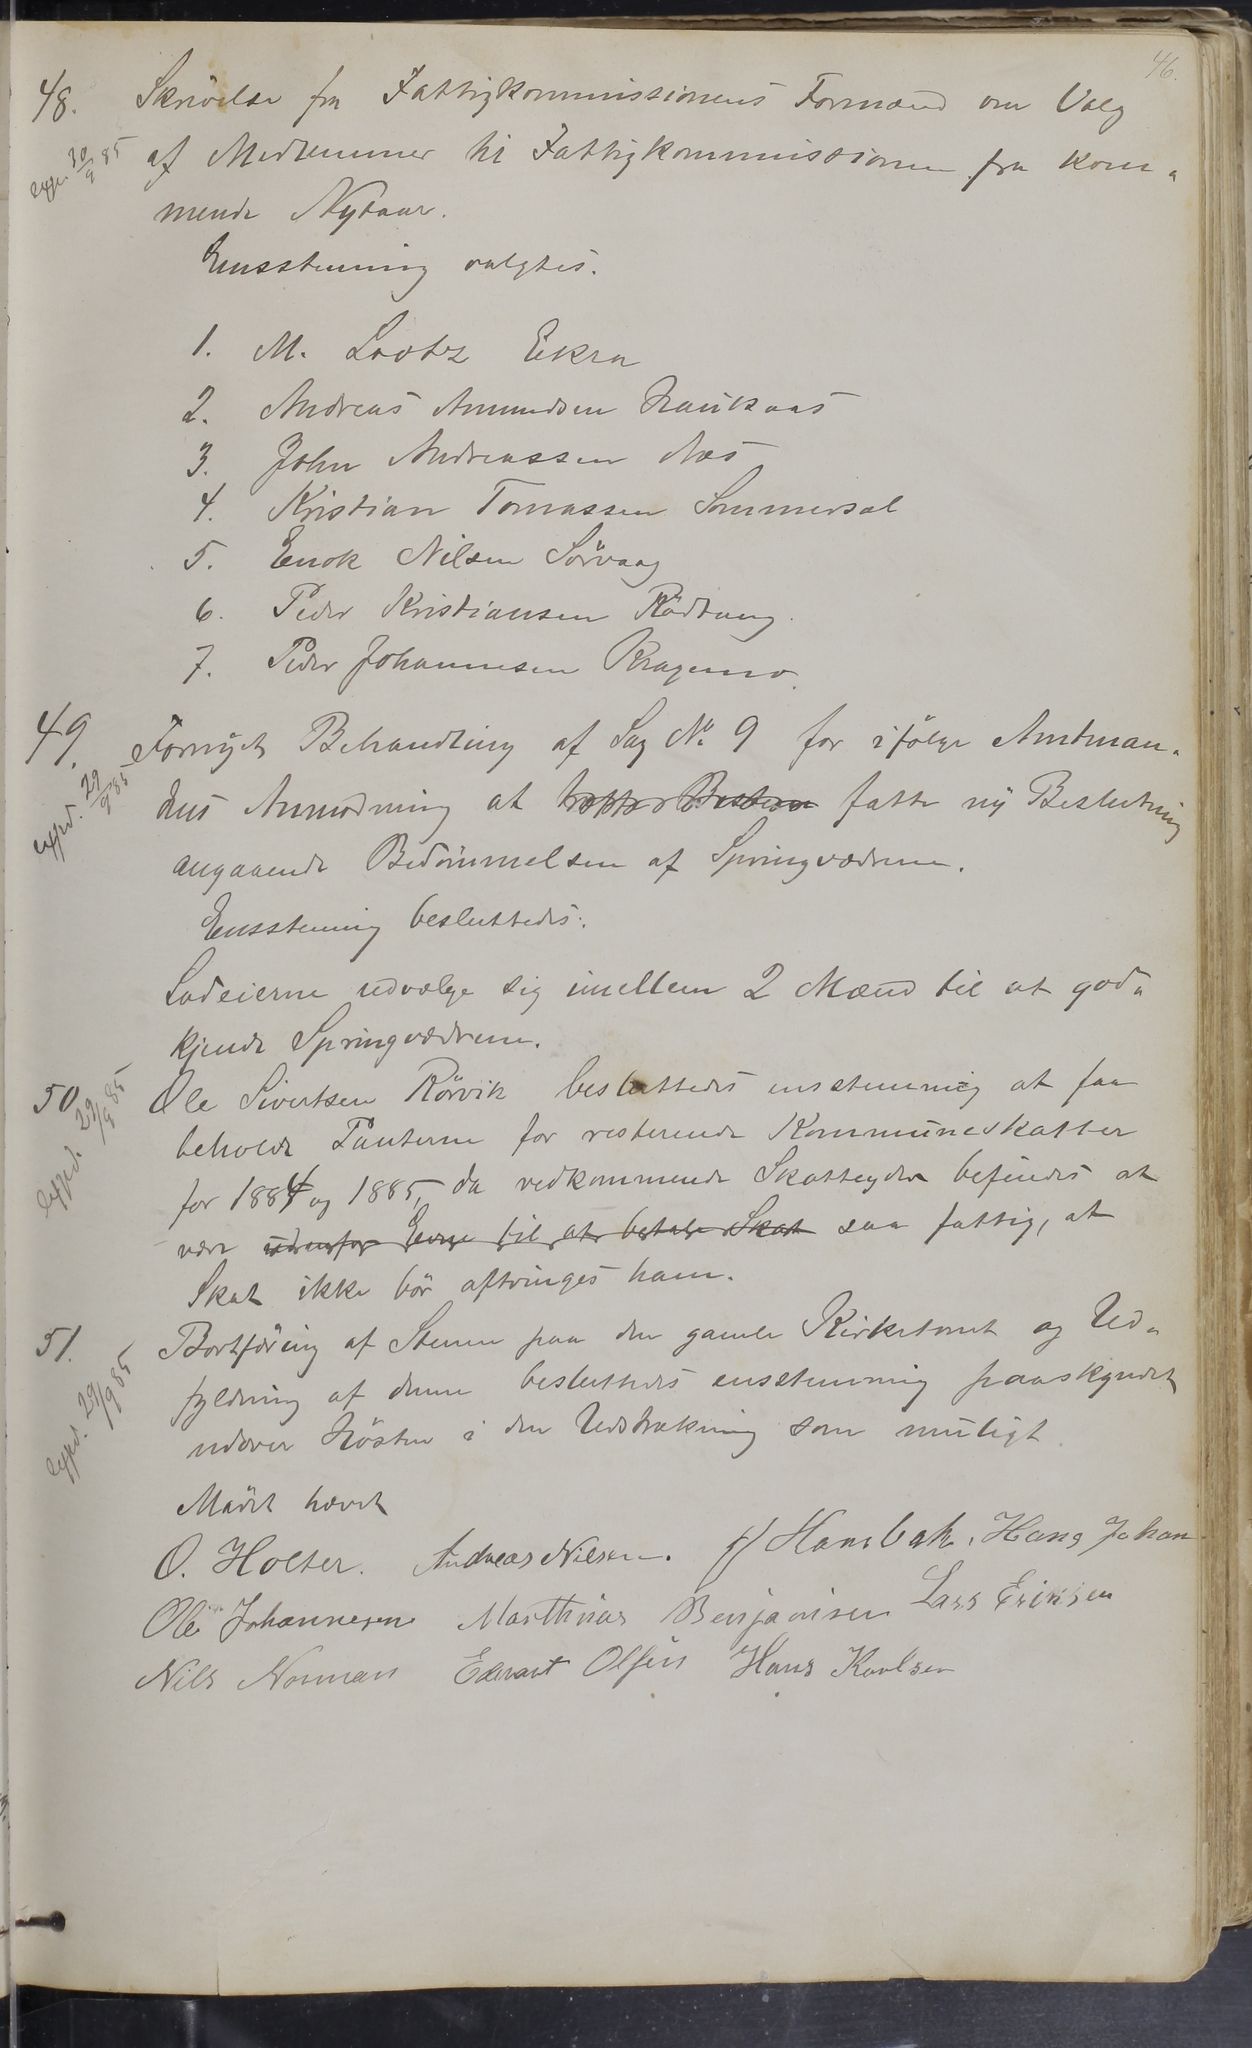 46.
48. Skrivelse fra Fattigkommissionens Formænd om Valg
exp. 30/9 85 af Medlemmer til Fattigkommissionen fra kom-
mende Nytaar.
Ensstemmig valgtes.
1. M. Lootz Ekra
2. Andreas Amundsen Haukaas
3. John Andreassen Næs
4. Kristian Tomassen Sommersel
5. Enok Nilsen Sörvaag
6. Peder Kristiansen Rödtang.
7. Peder Johannesen Kragemo.
49. Fornyet Behandling af Sag No. 9 for ifölge Amtman-
exped. 29/9 85 dens Anmodning at fatte ny Beslutning
angaaende Bedömmelsen af Springvædrene.
Ensstemmig besluttedes:
Sadeierne udvælge sig imellem 2 Mænd til at god-
kjende Springvædrene.
50. Ole Sivertsen Rörvik besluttedes ensstemmig at faa
exped. 29/9 85 beholde Panterne for resterende Kommuneskatter
for 1884 og 1885, da vedkommende Skatteyder befindes at
være udenfor Evne til at betale Skat saa fattig, at
Skat ikke bör aftvinges ham.
51. Bortföring af Stenene paa den gamle Kirketomt og Ud-
exped. 29/9 85 fyldning af denne besluttedes ensstemmig paaskyndet
udover Hösten i den Udstrækning som muligt
Mödet hævet
O. Holter. Andreas Nilsen. Hans Johan
Ole Johannesen Marthinus Benjaminsen Lars Eriksen
Nils Norman Edevart Olsen Hans Karlsen